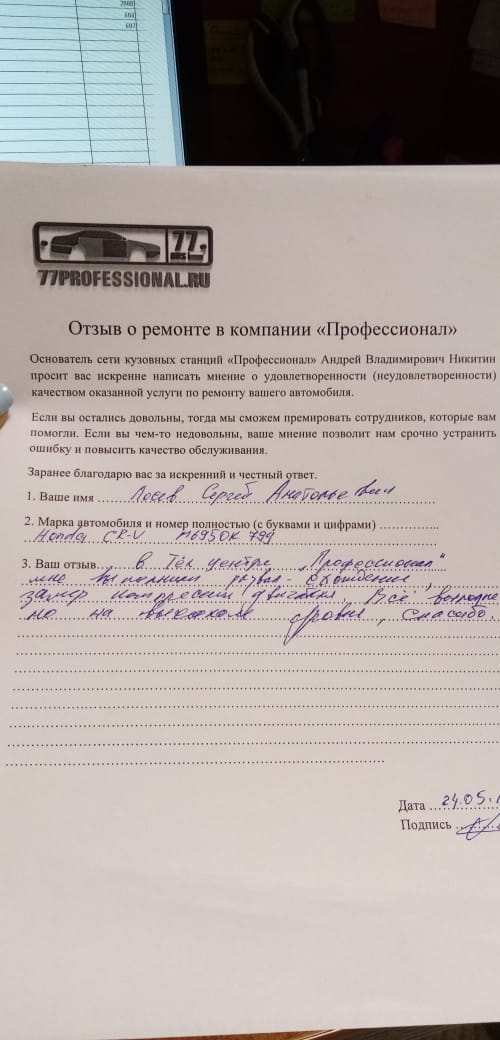 2000
604
607
77
77PROFESSIONAL.RU
Отзыв о ремонте в компании «Профессионал»
Основатель сети кузовных станций «Профессионал» Андрей Владимирович Никитин
просит вас искренне написать мнение о удовлетворенности (неудовлетворенности)
качеством оказанной услуги по ремонту вашего автомобиля.
Если вы остались довольны, тогда мы сможем премировать сотрудников, которые вам
помогли. Если вы чем-то недовольны, ваше мнение позволит нам срочно устранить
ошибку и повысить качество обслуживания.
Заранее благодарю вас за искренний и честный ответ.
1. Ваше имя Лосев Сергей Анатольевич
2. Марка автомобиля и номер полностью (с буквами и цифрами)
Honda CR-V М695ОК 799
3. Ваш отзыв в Тех центре „Профессионал"
мне выполнили развал-схождение,
замер компрессии двигателя. Всё выполне
но на высоком уровне, Спасибо.
Дата 24.05.1
Подпись